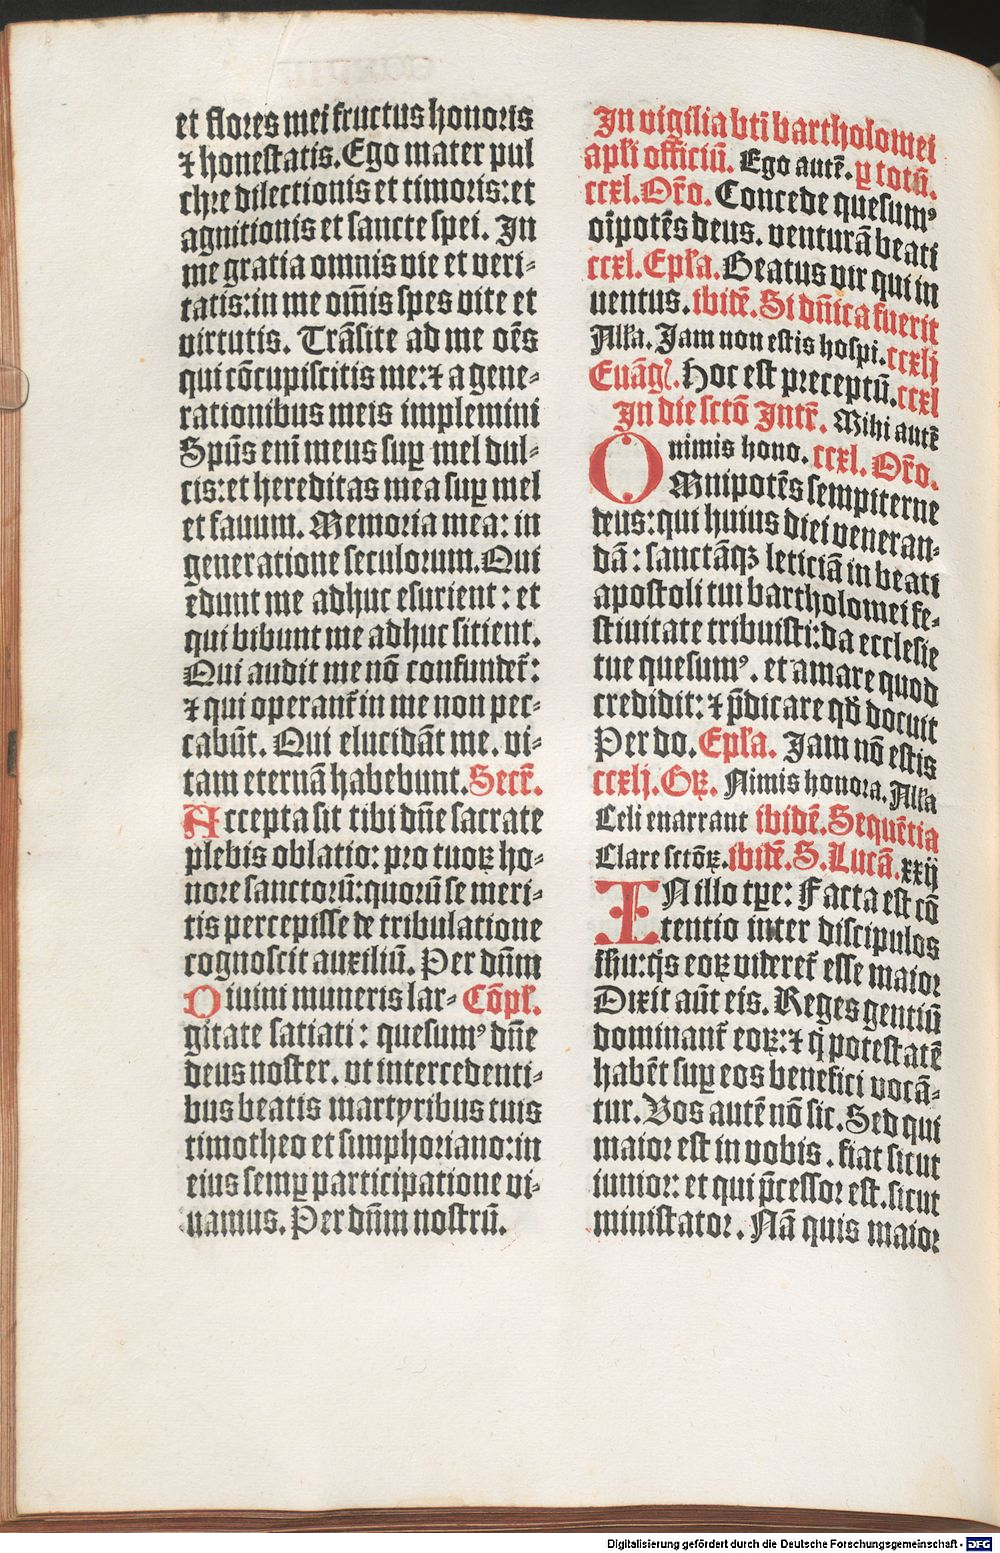 et flores mei fructus honoris
⁊ honestatis. Ego mater pul
chre dilectionis et timoris: et
agnitionis et sancte spei. In
me gratia omnis vie et veri⸗
tatis: in me om̄is spes vite et
virtutis. Trāsite ad me oēs
qui cōcupiscitis me: ⁊ a gene⸗
rationibus meis implemini
Spūs eni̅ meus suꝑ mel dul⸗
cis: et hereditas mea suꝑ mel
et fauum. Memoria mea: in
generatione seculorum. Qui
edunt me adhuc esurient: et
qui bibunt me adhuc sitient.
Qui audit me nō confundet̄:
⁊ qui operant̄ in me non pec⸗
cabūt. Qui elucidāt me. vi⸗
tam eternā habebunt. Secr̄.
Accepta sit tibi dn̄e sacrate
plebis oblatio: pro tuoꝝ ho⸗
nore sanctorū: quorū se meri⸗
tis percepisse de tribulatione
cognoscit auxiliū. Per dn̄m
Diuini muneris lar⸗ Cōpl̄.
gitate satiati: quesumꝰ dn̄e
deus noster. vt intercedenti⸗
bus beatis martyribus tuis
timotheo et simphoriano: in
eius semꝑ participatione vi⸗
uamus. Per dn̄m nostrū.
In vigilia bti̅ bartholomei
apl̄i officiū. Ego aute̅. ꝑ totū.
ccxl. Or̄o. Concede quesumꝰ
oi̅potēs deus. venturā beati
ccxl. Epl̄a. Beatus vir qui in
uentus. ibidē. Si dn̄ica fuerit
All̄a. Jam non estis hospi. ccxlj
Euāgl̄. Hoc est preceptū. ccxl
In die sctō Intr̄. Mihi autē
nimis hono. ccxl. Or̄o.
OMnipotēs sempiterne
deus: qui huius diei veneran⸗
dā: sanctāqꝫ leticiā in beati
apostoli tui bartholomei fe⸗
stiuitate tribuisti: da ecclesie
tue quesumꝰ. et amare quod
credidit: ⁊ p̄dicare qd̄ docuit
Per do. Epl̄a. Jam nō estis
ccxlj. Gꝝ. Nimis honora. All̄a
Celi enarrant ibidē. Sequētia
Clare sctōꝝ. ibidē. S. Lucā. xxij
IN illo tꝑe: Facta est cō
tentio inter discipulos
ih̄u: qͥs eoꝝ videret̄ esse maior
Dixit aūt eis. Reges gentiū
dominant̄ eoꝝ: ⁊ q̄ potestatē
habēt suꝑ eos benefici vocā⸗
tur. Vos autē nō sic. Sed qui
maior est in vobis. fiat sicut
iunior: et qui p̄cessor est. sicut
ministrator. Nā quis maior
Digitalisierung gefördert durch die Deutsche Forschungsgemeinschaft - DFG